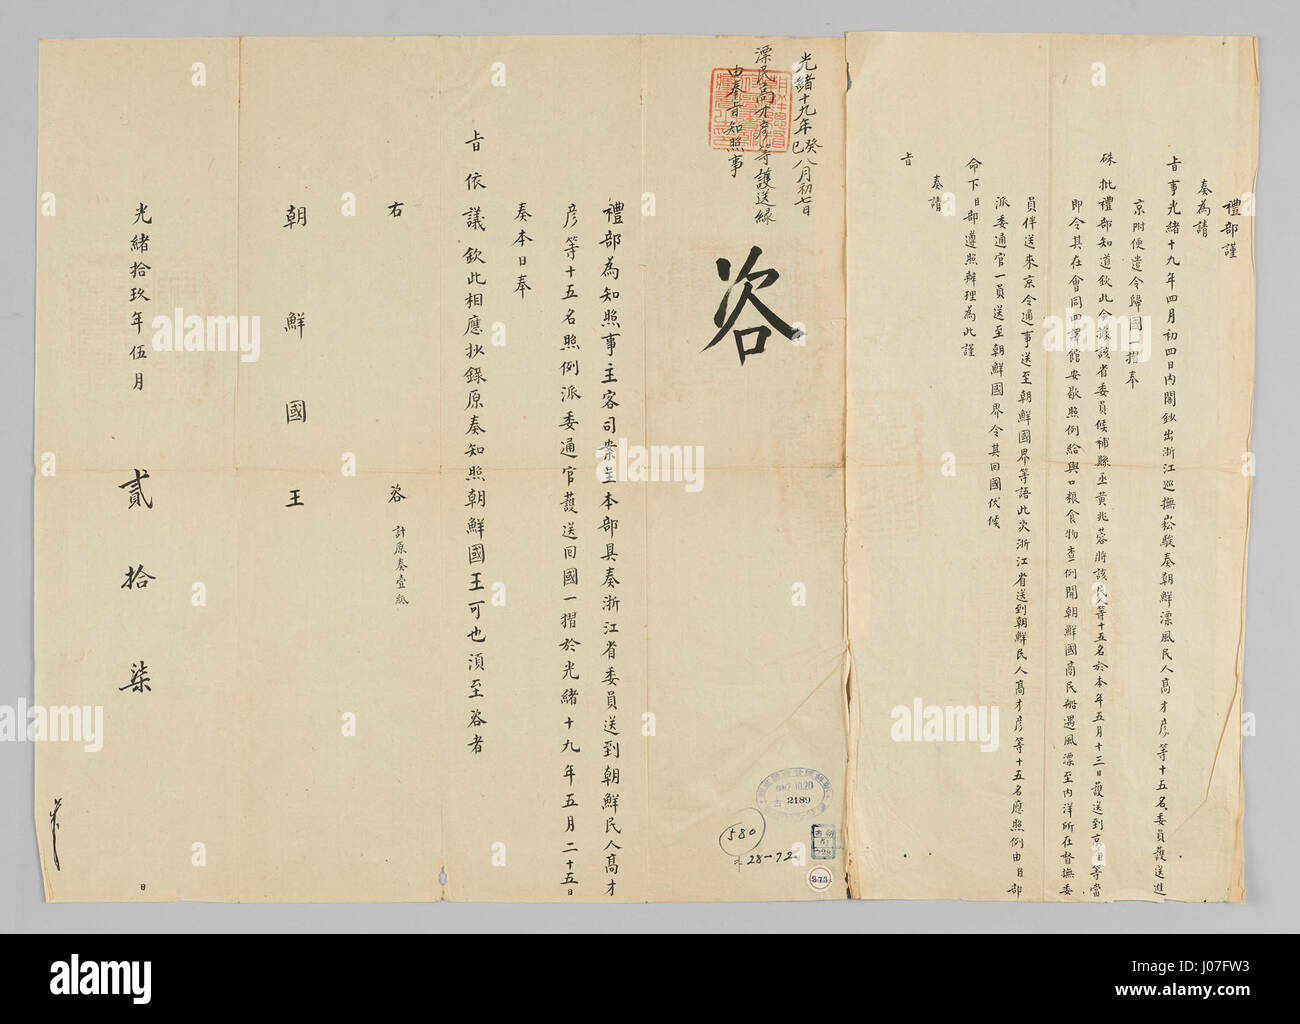 禮部謹
奏為請
旨事光緒十九年四月初四日內閣鈔出浙江巡撫崧駿奏朝鮮漂風民人高才彥等十五名委員護送進
京附便遣令歸國一摺奉
硃批禮部知道欽此今據該省委員候補縣丞黃兆蓉將該民人等十五名於本年五月十三日護送到京臣等當
即令其在會同四譯館安歇照例給與口糧食物查例開朝鮮國商民船遇風漂至內洋所在督撫委
員伴送來京令通事送至朝鮮國界等語此次浙江省送到朝鮮民人高才彥等十五名應照例由臣部
派委通官一員送至朝鮮國界令其回國伏候
命下臣部遵照辦理為此謹
奏請
旨
光緒十九年癸巳八月初七日
漂民高才彥等護送緣
由奉旨知照事
咨
禮部為知照事主客司案呈本部具奏浙江省委員送到朝鮮民人高才
彥等十五名照例派委通官護送回國一摺於光緒十九年五月二十五日
奏本日奉
旨依議欽此相應抄錄原奏知照朝鮮國王可也須至咨者
右 咨 計原奏壹紙
朝鮮國王
光緒拾玖年伍月 貳拾柒 日
10.20
古 2189
580
28-72
873
alamy
a
alamy
Image ID: J07FW3
www.alamy.com